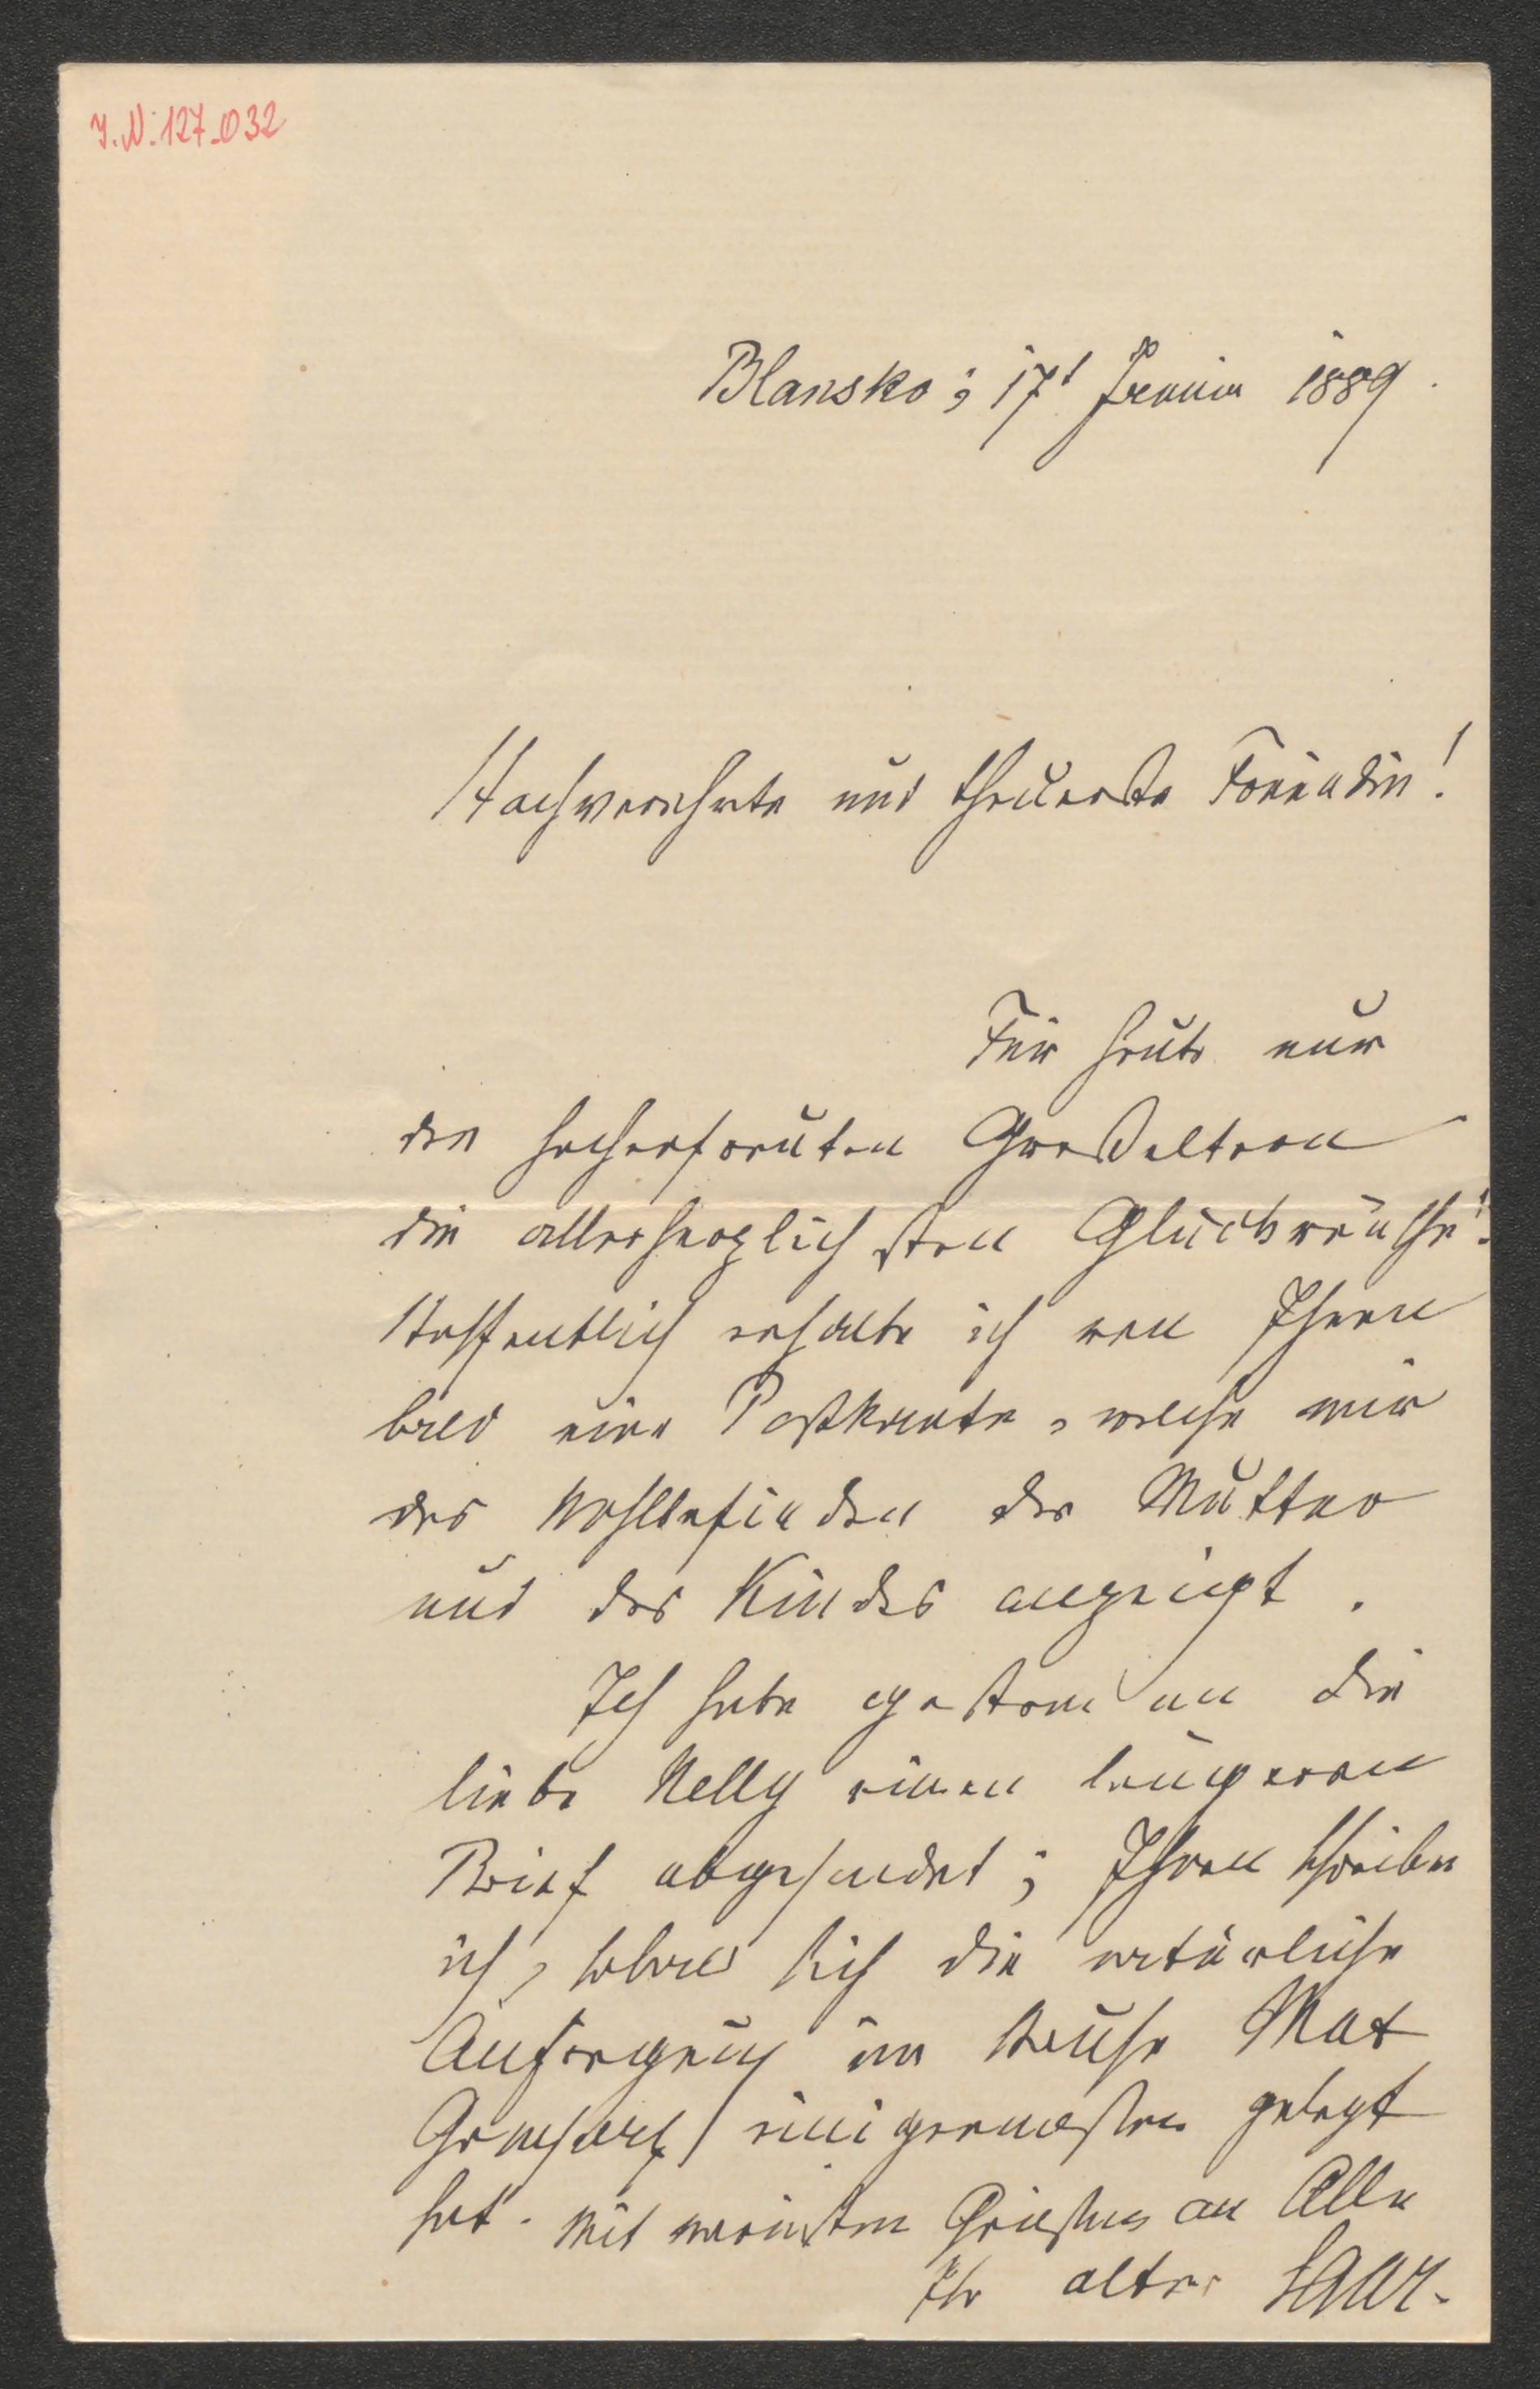 I.N. 127.032
Blansko; 17t Januar 1889.
Hochverehrte und theuerste Freundin!
Für heute nur
den hocherfreuten Großeltern
die allerherzlichsten Glückwünsche!
Hoffentlich erhalte ich von Ihnen
bald eine Postkarte, welche mir
das Wohlbefinden der Mutter
und des Kindes anzeigt.
Ich habe gestern an die
liebe Nelly einen längeren
Brief abgesendet; Ihnen schreibe
ich, sobald sich die natürliche
Aufregung im Hause
einigermaßen gelegt
hat. Mit Grüßen an Alle
Ihr alter Saar.